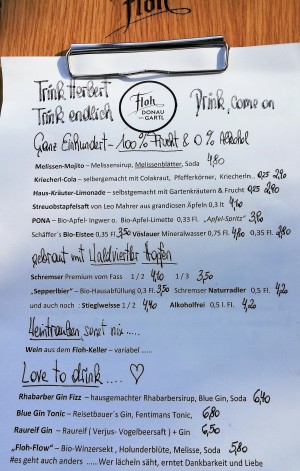 Floh
Trink Herbert
Trink endlich
Floh
DONAU
GARTL
Drink, come on
Ganz Einhundert - 100% Frucht & 0% Alkohol
Melissen-Mojito – Melissensirup, Melissenblätter, Soda 4,80
Kriecherl-Cola – selbergemacht mit Colakraut, Pfefferkörner, Kriecherln.. 0,25 2,90
Haus-Kräuter-Limonade – selbstgemacht mit Gartenkräutern & Frucht 0,25 2,90
Streuobstapfelsaft von Leo Mahrer aus grasgrünen Äpfeln 0,3 lt 4,10
PONA – Bio-Apfel- Ingwer o. Bio-Apfel-Limette 0.33 Fl. „Apfel-Spritz" 3,90
Schäffer's Bio-Eistee 0,35 Fl 3,50 Vöslauer Mineralwasser 0,75 Fl. 4,80 0,35 Fl. 2,80
gebraut mit Waldviertler Hopfen
Schremser Premium vom Fass 1/2 4,10 1/3 3,50
„Sepperlbier" – Bio-Hausabfüllung 0,3 Fl 3,50 Schremser Naturradler 0,5 Fl. 4,20
und auch noch : Stieglweisse 1/2 4,40 Alkoholfrei 0,5 l. Fl. 4,20
Weintrauben, sonst nix .....
Wein aus dem Floh-Keller – variabel .....
Love to drink ....
Rhabarber Gin Fizz – hausgemachter Rhabarbersirup, Blue Gin, Soda 6,40
Blue Gin Tonic – Reisetbauer´s Gin, Fentimans Tonic, 6,80
Raureif Gin – Raureif ( Verjus- Vogelbeersaft ) + Gin 6,50
„Floh-Flow" – Bio-Winzersekt , Holunderblüte, Melisse, Soda 5,80
#es geht auch anders ......Wer lächeln säht, erntet Dankbarkeit und Liebe